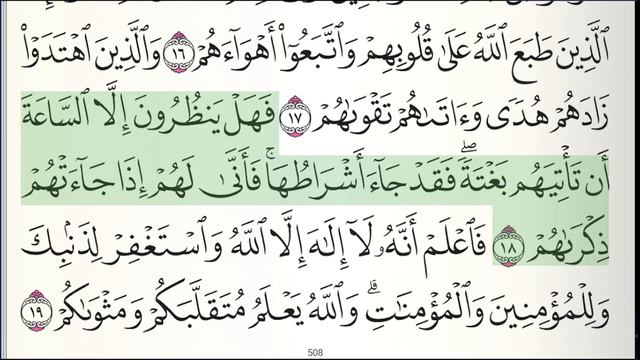 ٱلَّذِينَ طَبَعَ ٱللَّهُ عَلَىٰ قُلُوبِهِمْ وَٱتَّبَعُوٓا۟ أَهْوَآءَهُمْ ١٦ وَٱلَّذِينَ ٱهْتَدَوْا۟
زَادَهُمْ هُدًى وَءَاتَىٰهُمْ تَقْوَىٰهُمْ ١٧ فَهَلْ يَنظُرُونَ إِلَّا ٱلسَّاعَةَ
أَن تَأْتِيَهُم بَغْتَةً ۖ فَقَدْ جَآءَ أَشْرَاطُهَا ۚ فَأَنَّىٰ لَهُمْ إِذَا جَآءَتْهُمْ
ذِكْرَىٰهُمْ ١٨ فَٱعْلَمْ أَنَّهُۥ لَآ إِلَٰهَ إِلَّا ٱللَّهُ وَٱسْتَغْفِرْ لِذَنۢبِكَ
وَلِلْمُؤْمِنِينَ وَٱلْمُؤْمِنَٰتِ ۗ وَٱللَّهُ يَعْلَمُ مُتَقَلَّبَكُمْ وَمَثْوَىٰكُمْ ١٩
508